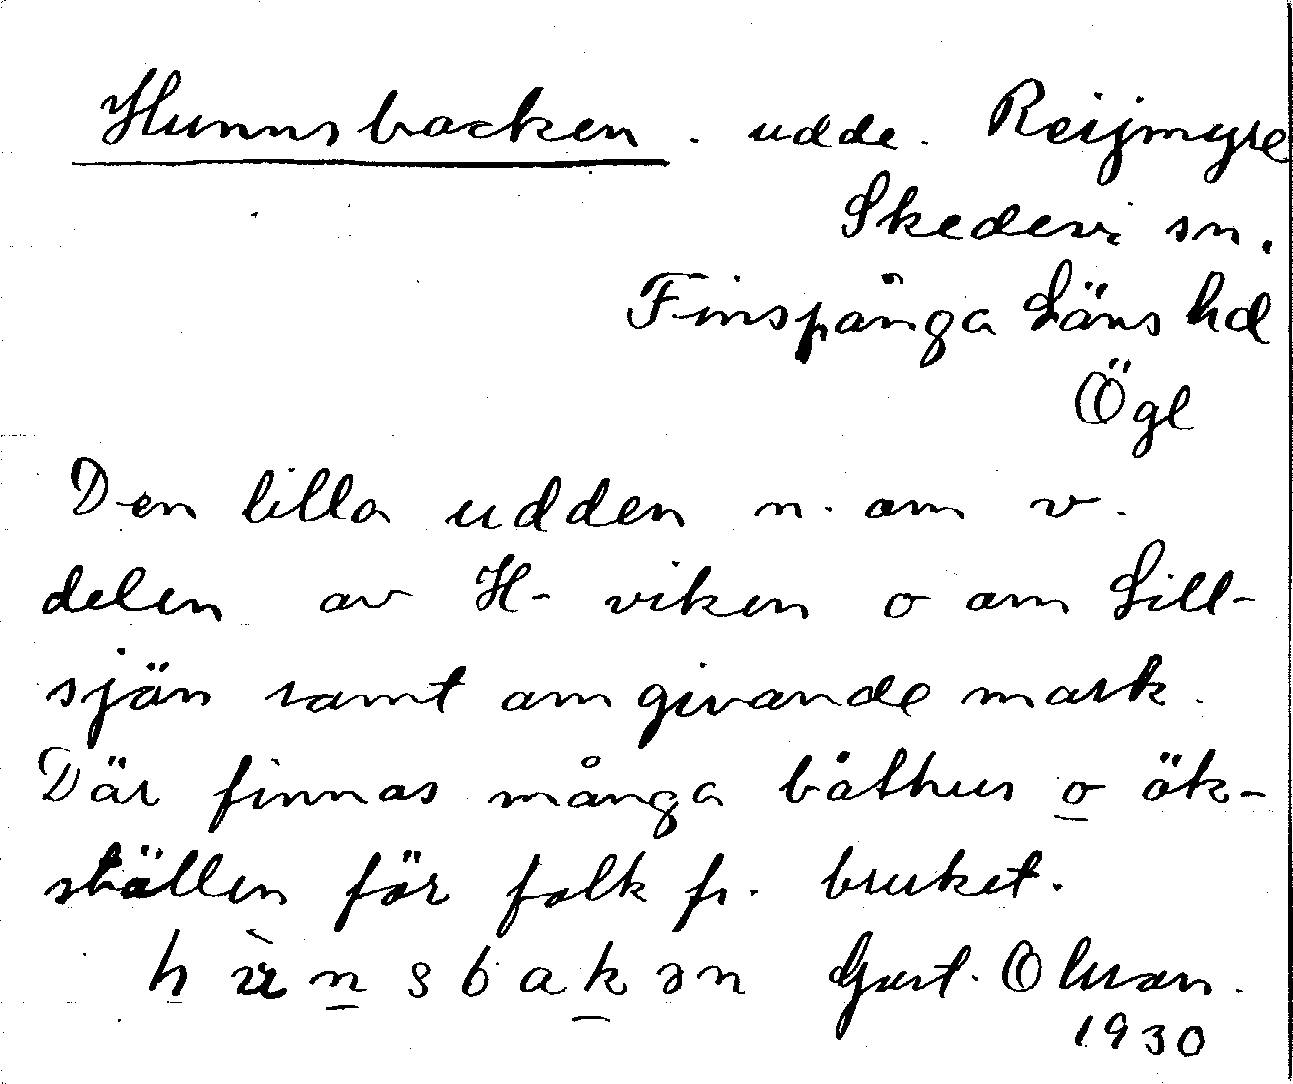 Hunnsbacken. udde. Reijmyre
Skedevi sn.
Finspånga Läns hd
Ögl
Den lilla udden n. om v.
delen av H-viken o om Lill-
sjön samt omgivande mark.
Där finnas många båthus o ök-
ställen för folk fr. bruket.
hùnsbakən Gust. Olsson.
1930